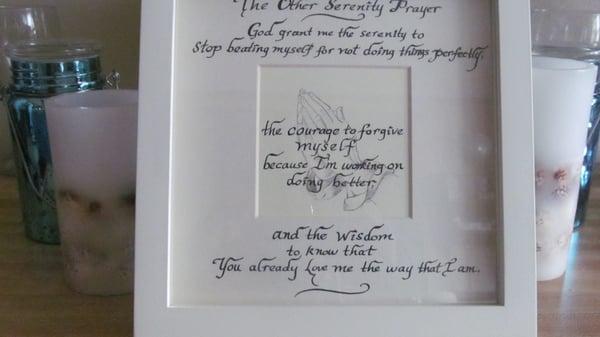 The Other Serenity Prayer
God grant me the serenity to
Stop beating myself for not doing things perfectly,
the courage to forgive
myself
because I'm working on
doing better,
and the wisdom
to know that
You already Love me the way that I am.